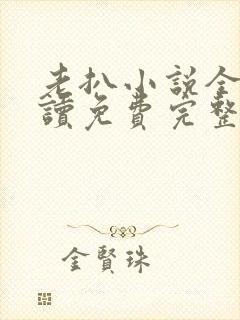 老扒小説全
讀免費完整
金賢珠